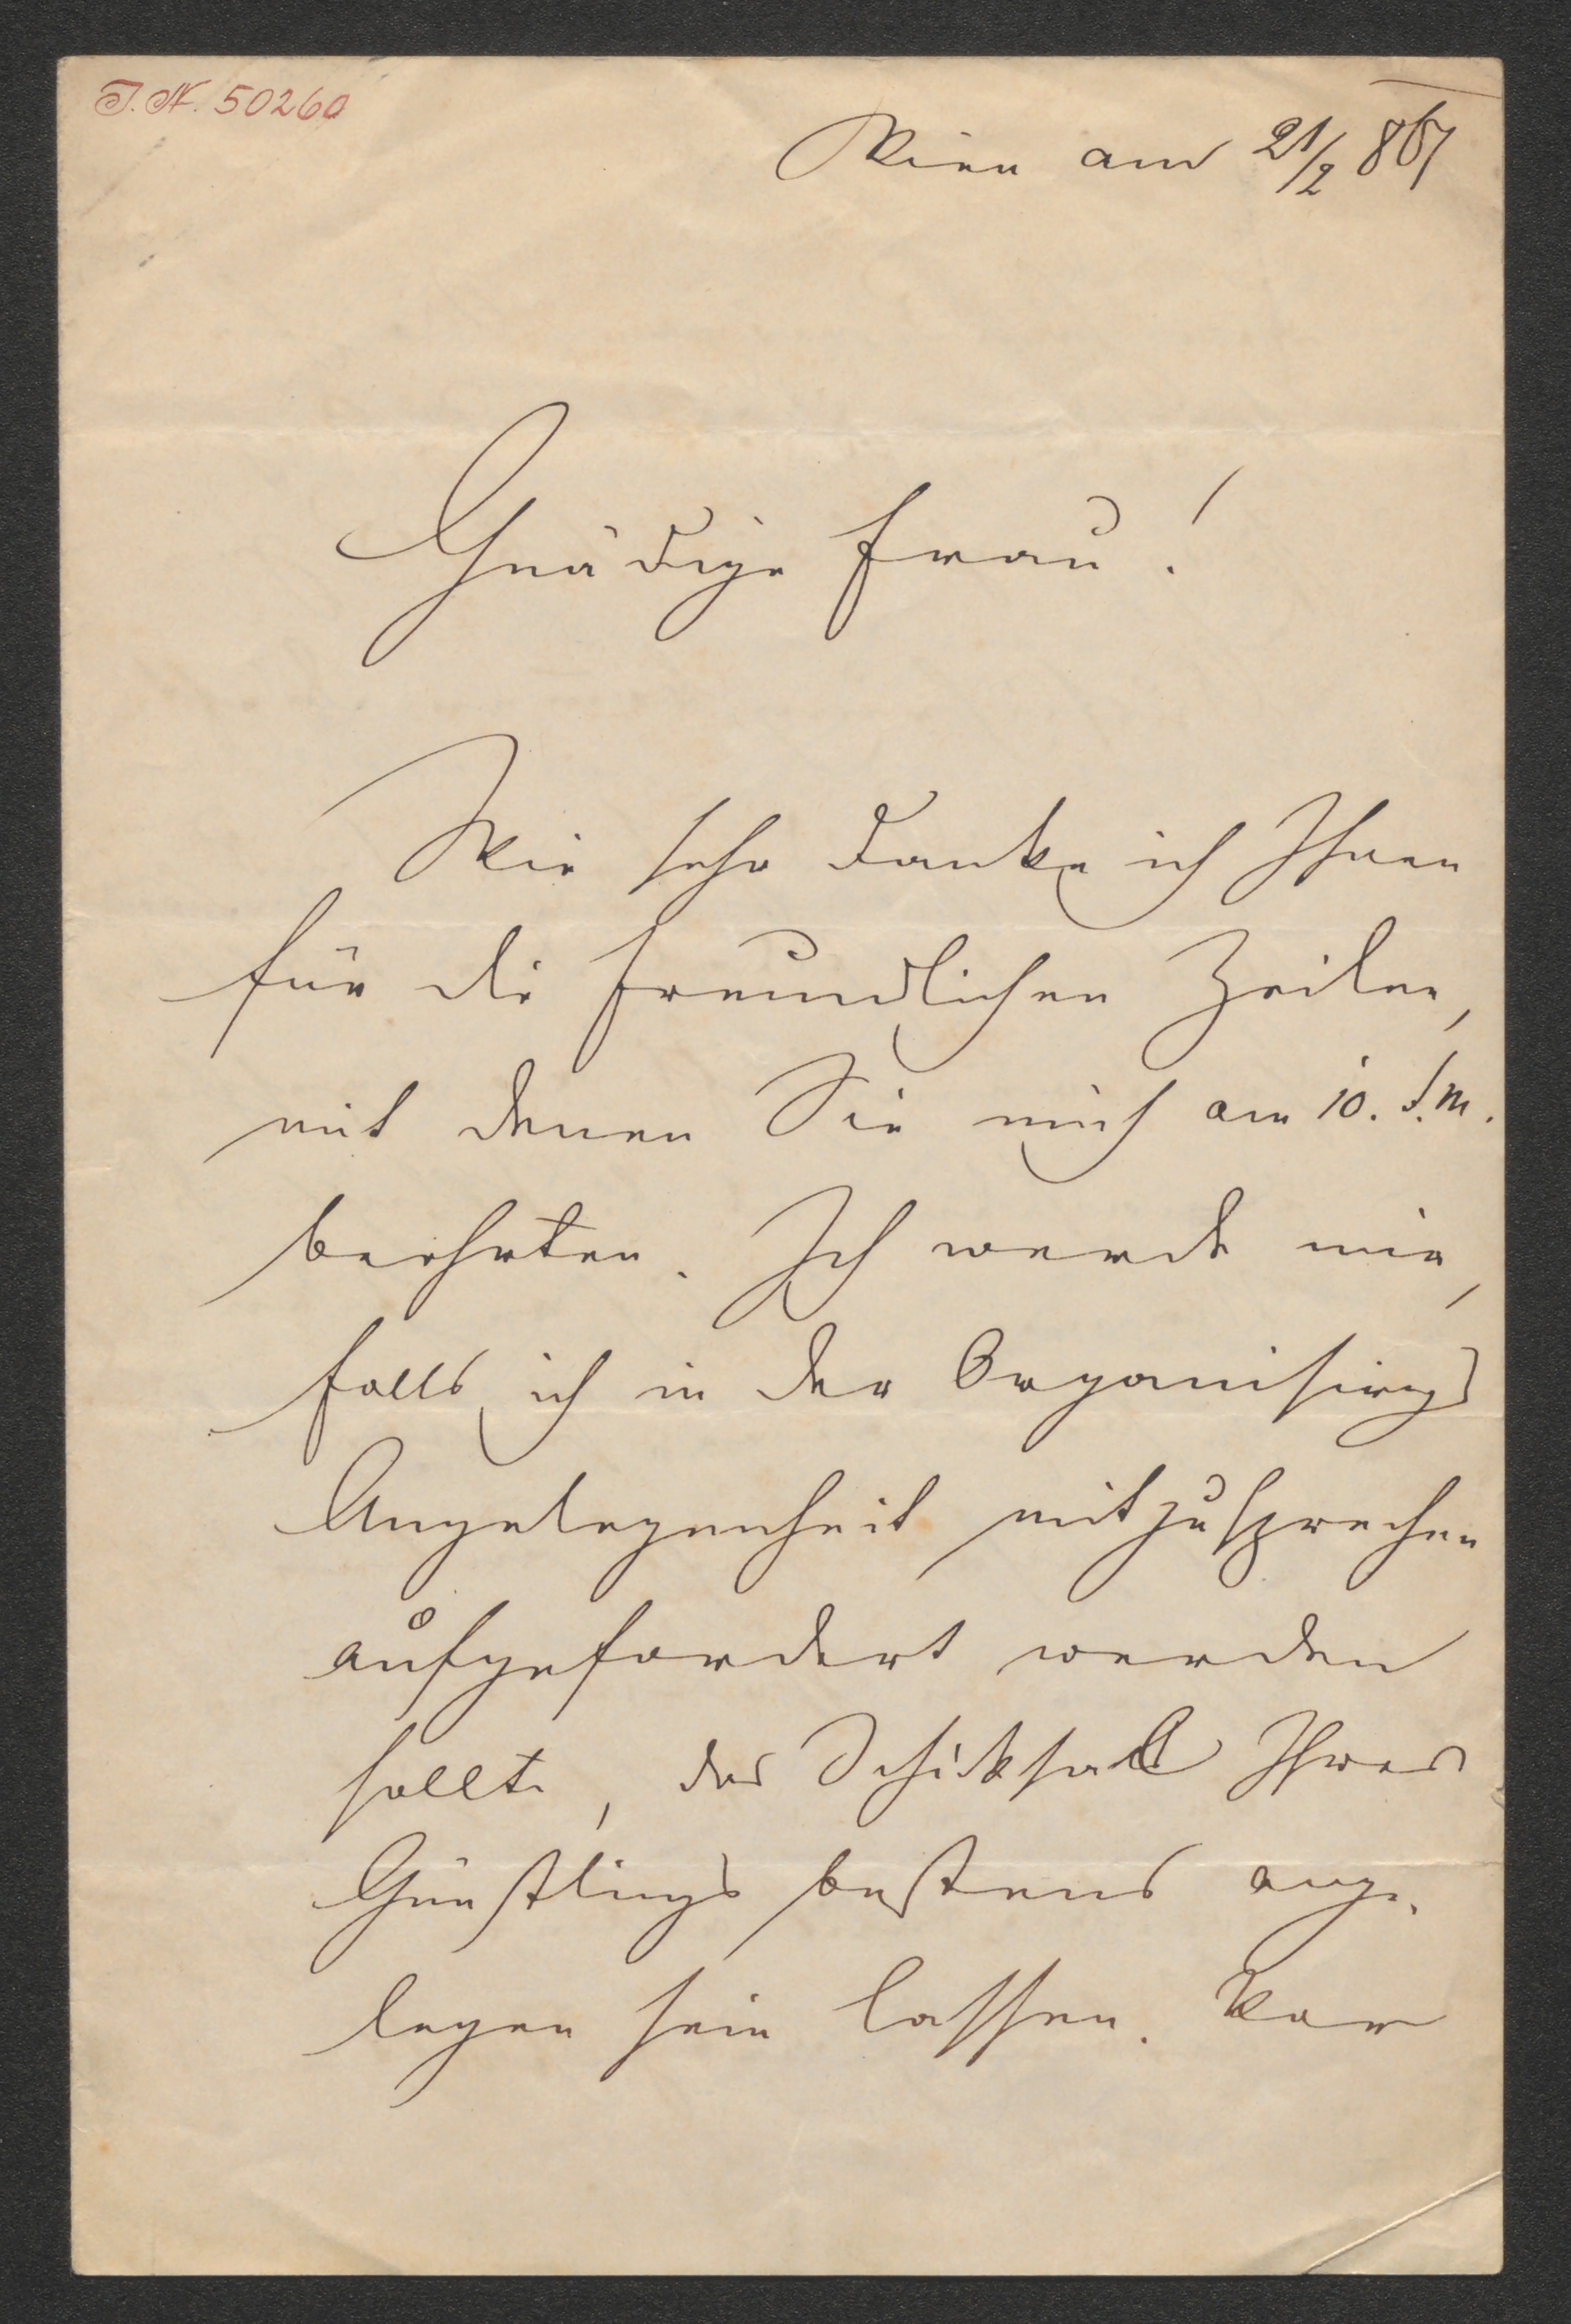 I.N. 50260
Wien am 21/2 867
Gnädige Frau!
Wie sehr danke ich Ihnen
für die freundlichen Zeilen,
mit denen Sie mich am 10. d.M.
beehrten. Ich werde mir,
falls ich in der Organisirgs
Angelegenheit mitzusprechen
aufgefordert werden
sollte, das Schiksal Ihres
Günstlings bestens ange-
legen sein lassen. Vor